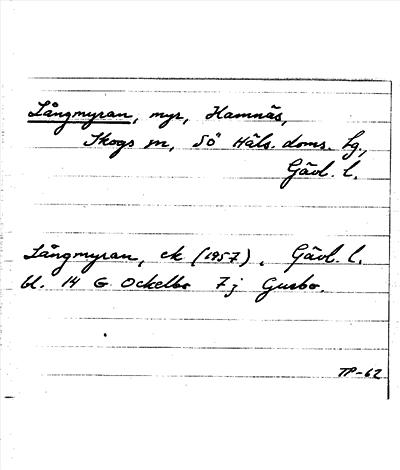 Långmyran, myr, Hamnäs,
Skogs sn, Sö Häls. doms. lg.,
Gävl. l.
Långmyran, ek (1957), Gävl. l.
bl. 14 G Ockelbo 7 j Gusbo.
TP-62